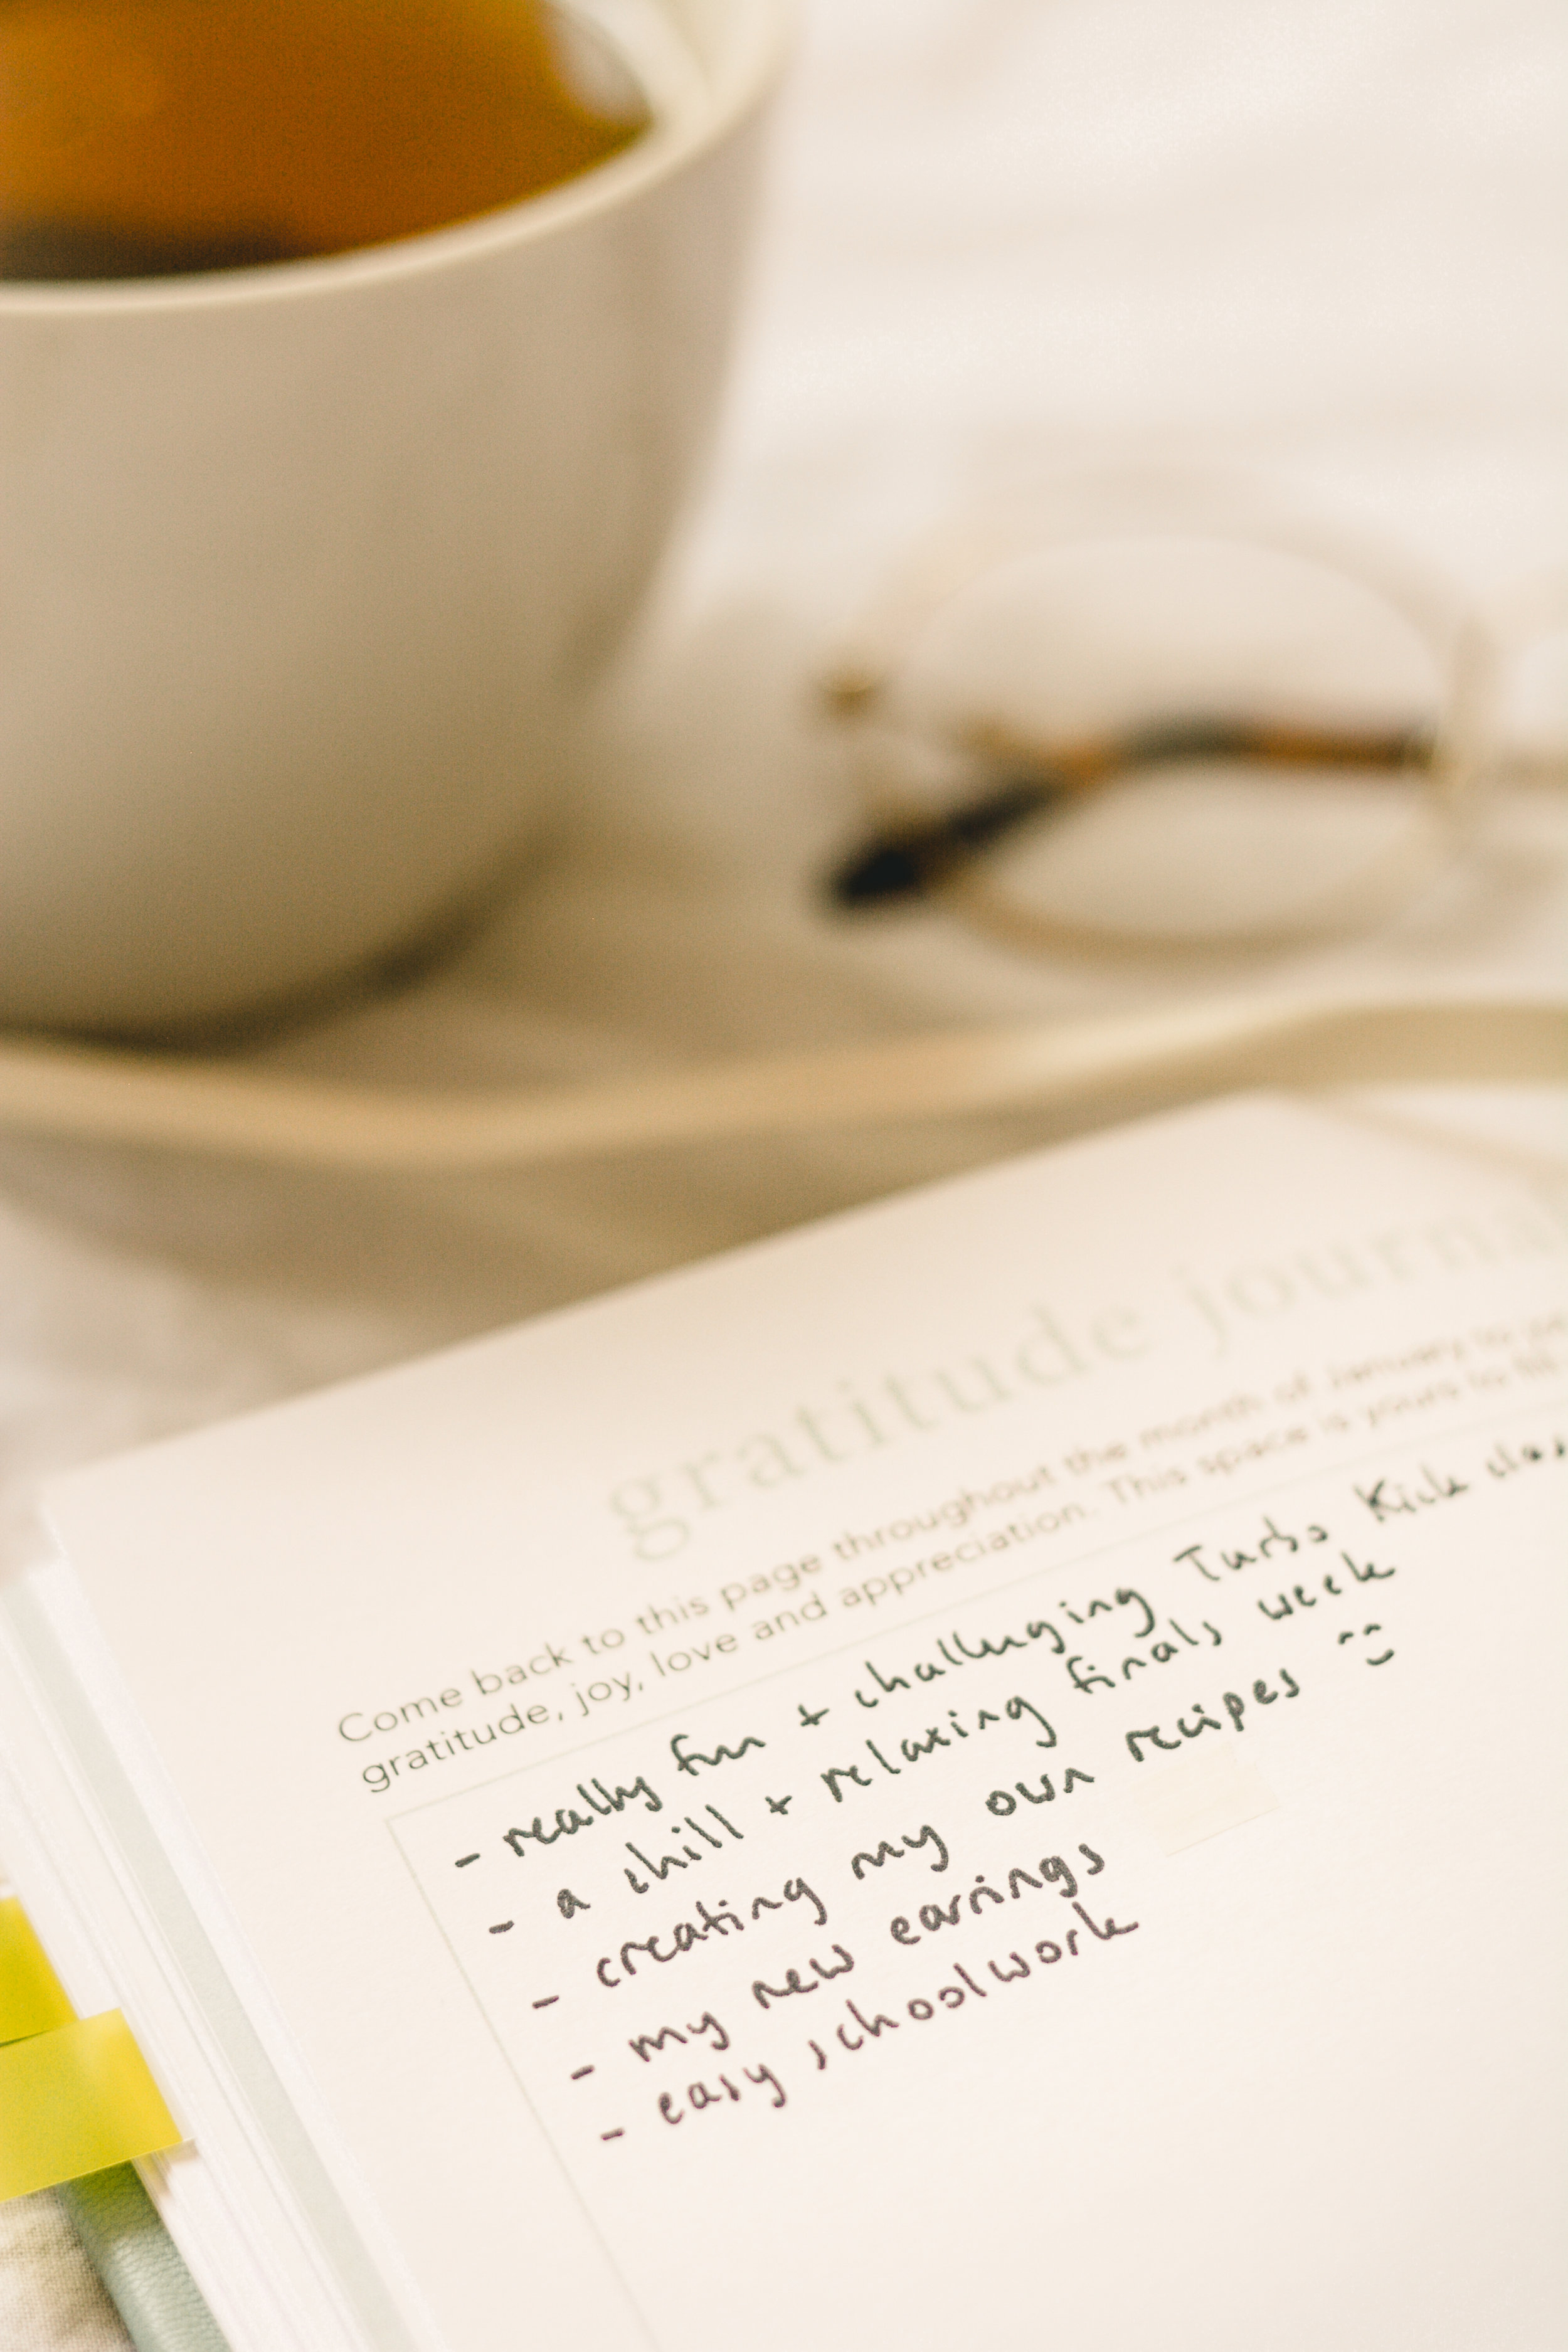 gratitude journa
Come back to this page throughout the month of January to
gratitude, joy, love and appreciation. This space is yours to fill
- really fun + challenging Turbo Kick clas
- a chill + relaxing finals week
- creating my own recipes
- my new earrings
- easy schoolwork